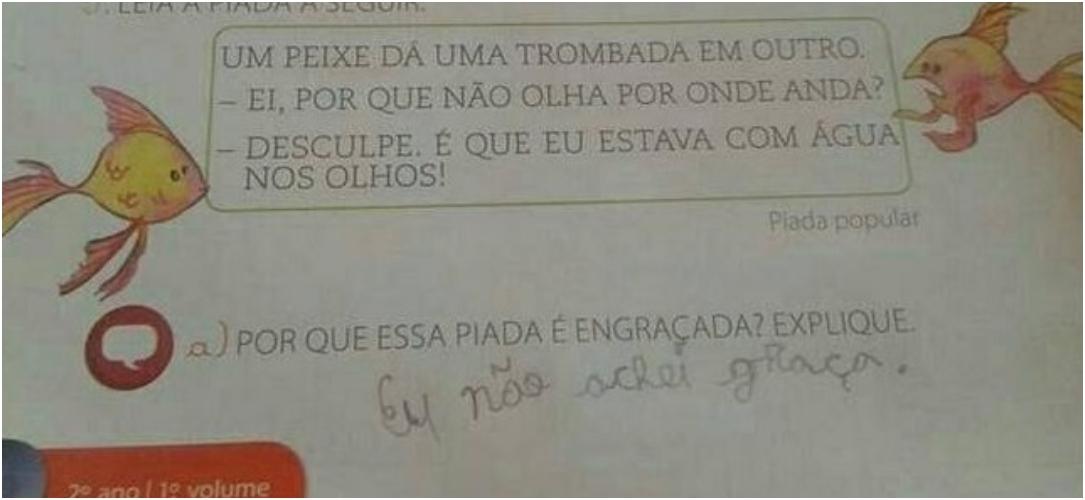 LEIA A PIADA A SEGUIR.
UM PEIXE DÁ UMA TROMBADA EM OUTRO.
– EI, POR QUE NÃO OLHA POR ONDE ANDA?
– DESCULPE. É QUE EU ESTAVA COM ÁGUA
NOS OLHOS!
Piada popular
a) POR QUE ESSA PIADA É ENGRAÇADA? EXPLIQUE.
Eu não achei graça.
2º ano | 1º volume